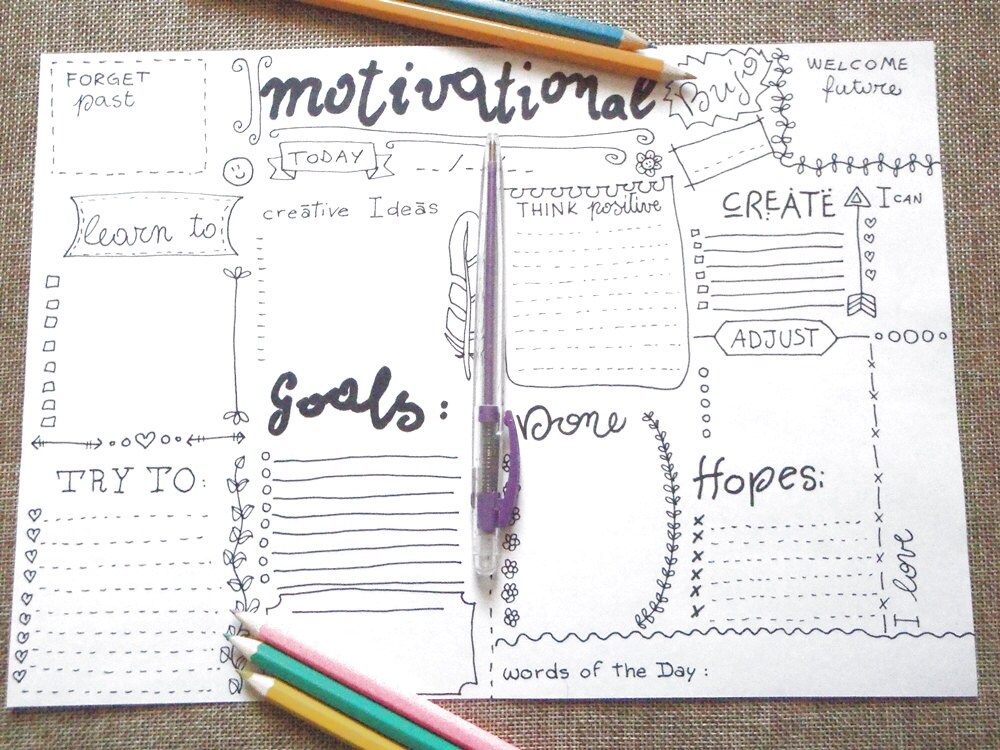 FORGET
past
motivational
Bujo
WELCOME
future
TODAY
learn to
creative Ideas
THINK positive
CREATE
I CAN
ADJUST
Goals:
Done
TRY TO:
Hopes:
I love
words of the Day: